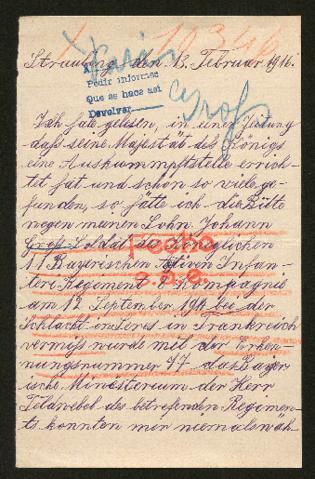 Straubing, den 13. Februar 1916.
Paris
Pedir informes
Que se hace asi
Devolver
Grof
Ich habe gelesen, in einer Zeitung
daß seine Majestät des Königs
eine Auskumpftstelle errich-
tet hat und schon so viele ge-
funden, so hätte ich die Bitte
wegen meinen Sohn Johann
Groß Soldat des Königlichen
11 Bayerischen Infan-
terie Regiment 8 Kompagnie
am 12 September 1914 bei der
Schlacht in Frankreich
vermißt wurde mit der Erken-
nungsnummer 77 das Bayer-
ische Ministerium der Herr
Feldwebel des betrefenden Regimen-
ts konnten mir niemals wah-
Fecho